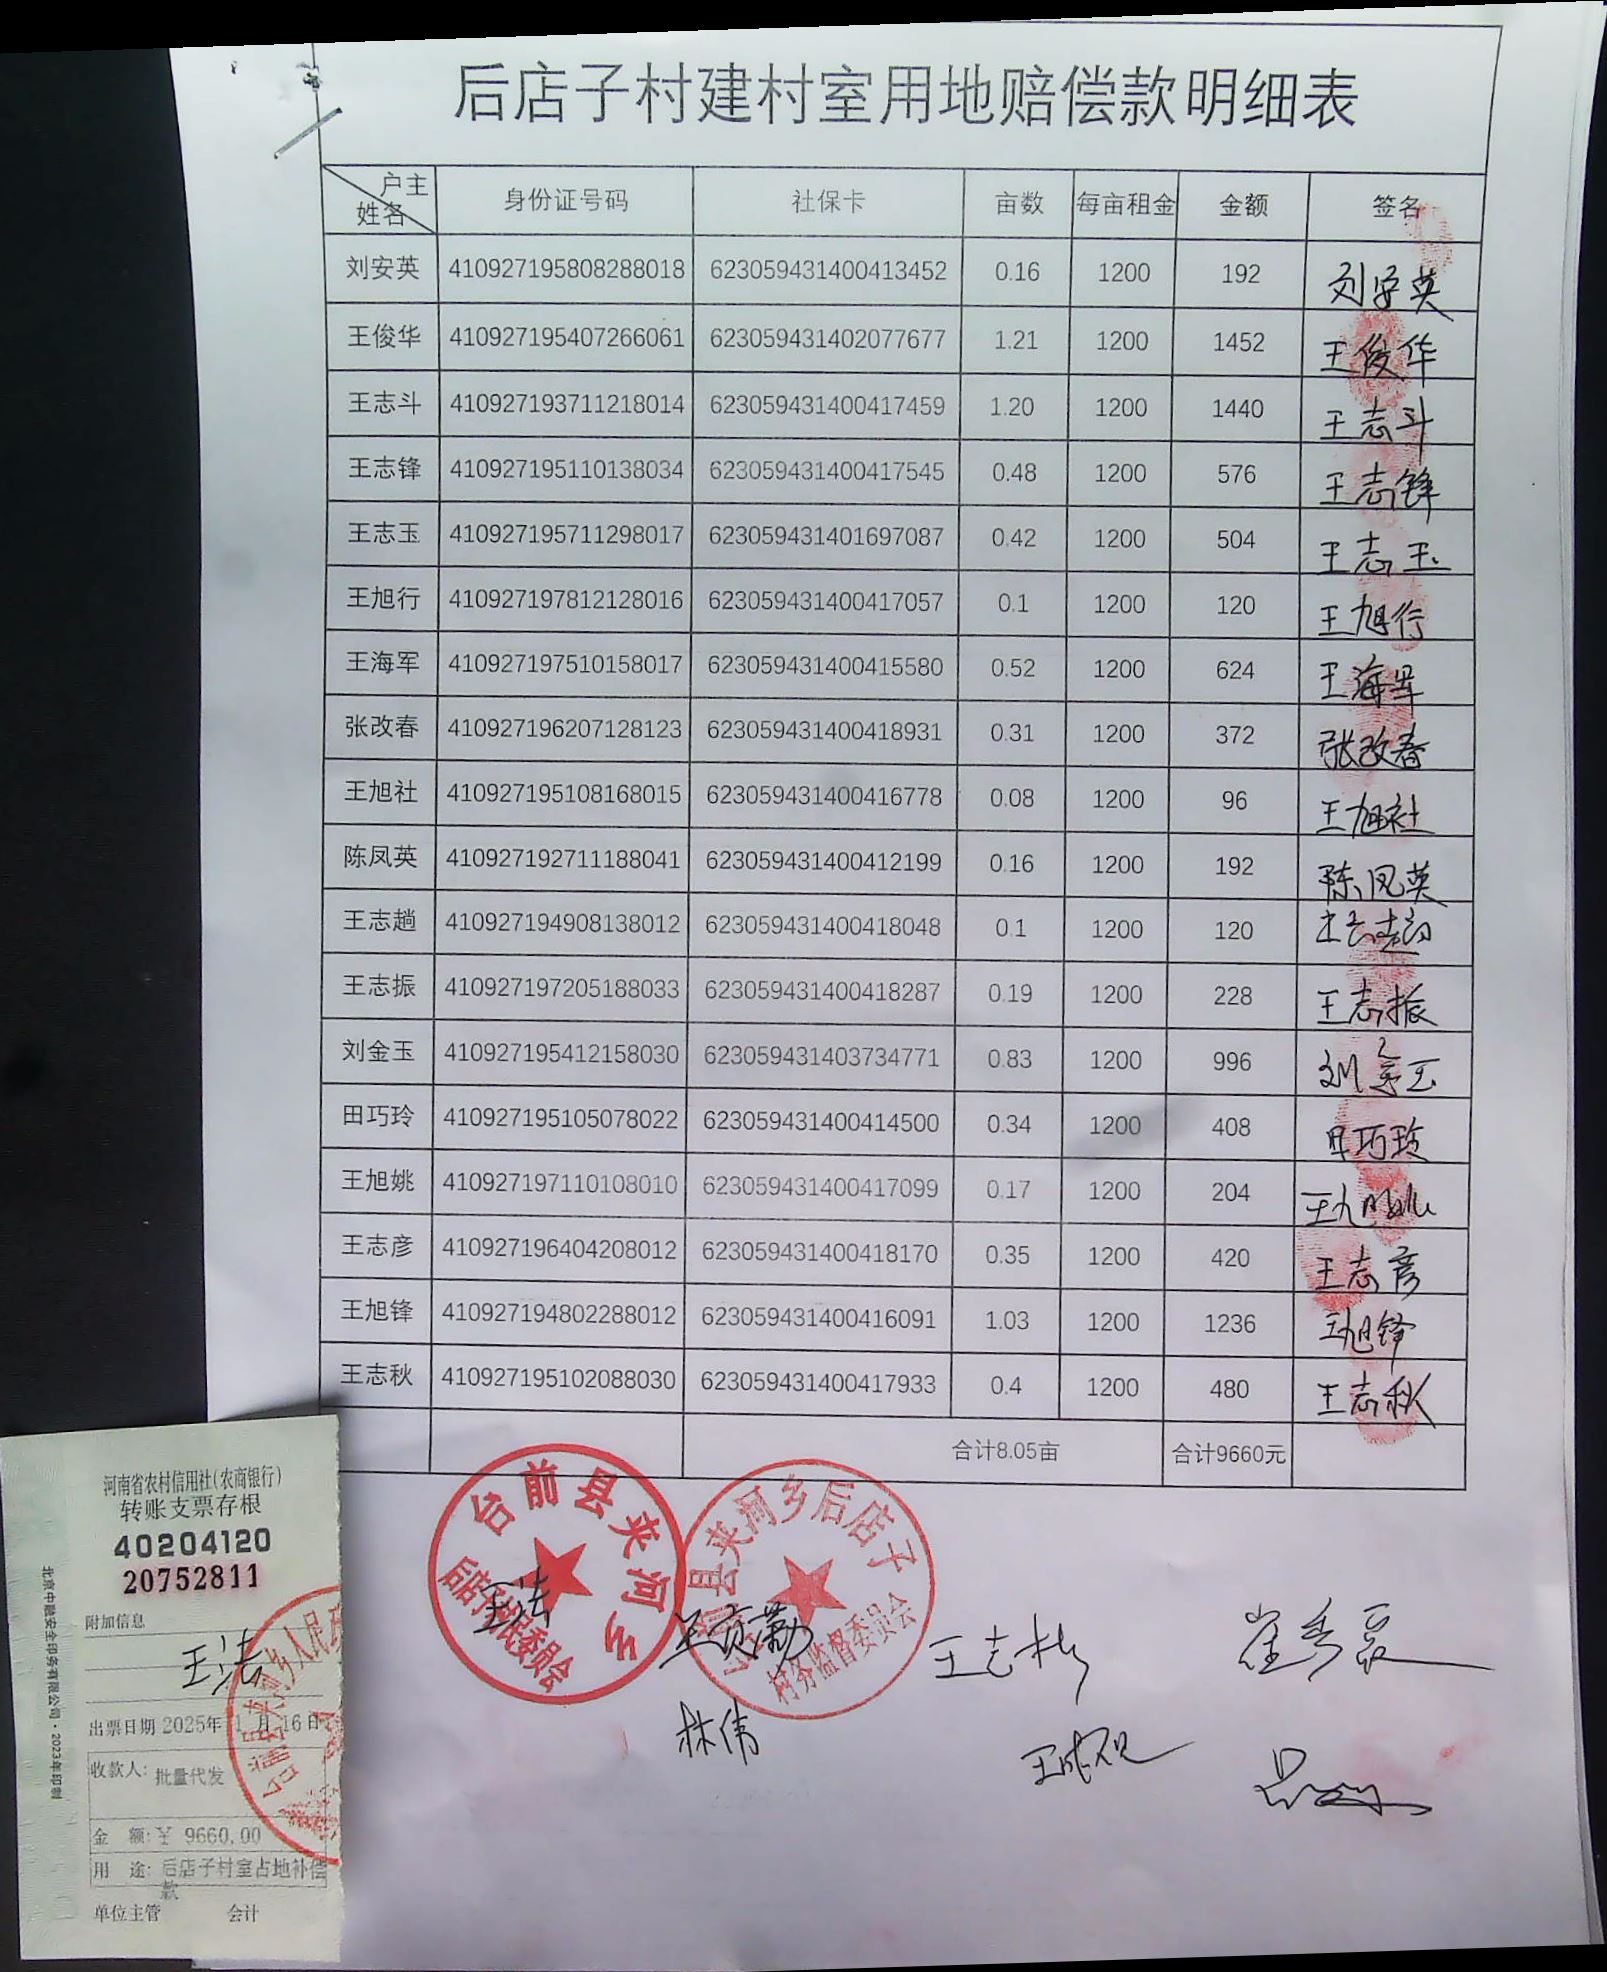 后店子村建村室用地赔偿款明细表
户主姓名 身份证号码 社保卡 亩数 每亩租金 金额 签名
刘安英 410927195808288018 623059431400413452 0.16 1200 192 刘安英
王俊华 410927195407266061 623059431402077677 1.21 1200 1452 王俊华
王志斗 410927193711218014 623059431400417459 1.20 1200 1440 王志斗
王志锋 410927195110138034 623059431400417545 0.48 1200 576 王志锋
王志玉 410927195711298017 623059431401697087 0.42 1200 504 王志玉
王旭行 410927197812128016 623059431400417057 0.1 1200 120 王旭行
王海军 410927197510158017 623059431400415580 0.52 1200 624 王海军
张改春 410927196207128123 623059431400418931 0.31 1200 372 张改春
王旭社 410927195108168015 623059431400416778 0.08 1200 96 王旭社
陈凤英 410927192711188041 623059431400412199 0.16 1200 192 陈凤英
王志趟 410927194908138012 623059431400418048 0.1 1200 120 王志趟
王志振 410927197205188033 623059431400418287 0.19 1200 228 王志振
刘金玉 410927195412158030 623059431403734771 0.83 1200 996 刘金玉
田巧玲 410927195105078022 623059431400414500 0.34 1200 408 田巧玲
王旭姚 410927197110108010 623059431400417099 0.17 1200 204 王旭姚
王志彦 410927196404208012 623059431400418170 0.35 1200 420 王志彦
王旭锋 410927194802288012 623059431400416091 1.03 1200 1236 王旭锋
王志秋 410927195102088030 623059431400417933 0.4 1200 480 王志秋
合计8.05亩 合计9660元
台前县夹河乡
后店子村民委员会
县夹河乡后店子
村务监督委员会
王法
林伟
河南省农村信用社(农商银行)
转账支票存根
40204120
20752811
附加信息
王法
出票日期 2025年 1月16日
收款人: 批量代发
金 额: ¥ 9660.00
用 途: 后店子村室占地补偿
款
单位主管 会计
北京中融安全印务有限公司·2023年印制